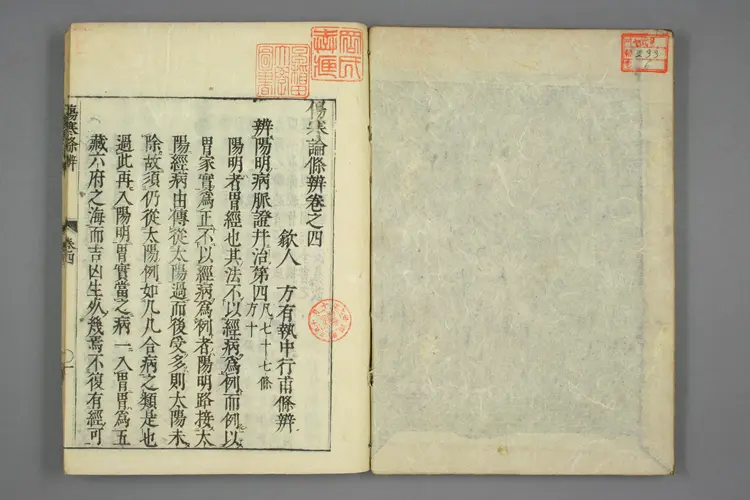 傷寒論條辨卷之四
歙人 方有執中行甫條辨
辨陽明病脈證并治第四凡七十七條
方十
陽明者胃經也其法不以經病爲例而例以
胃家實爲正不以經病爲例者陽明路接太
陽經病由傳從太陽過而後受多則太陽未
除故須仍從太陽例如凡凡合病之類是也
過此再入陽明胃實當之病一入胃胃爲五
藏六府之海而吉凶生死幾焉不復有經可
傷寒條辨
卷四
一
233